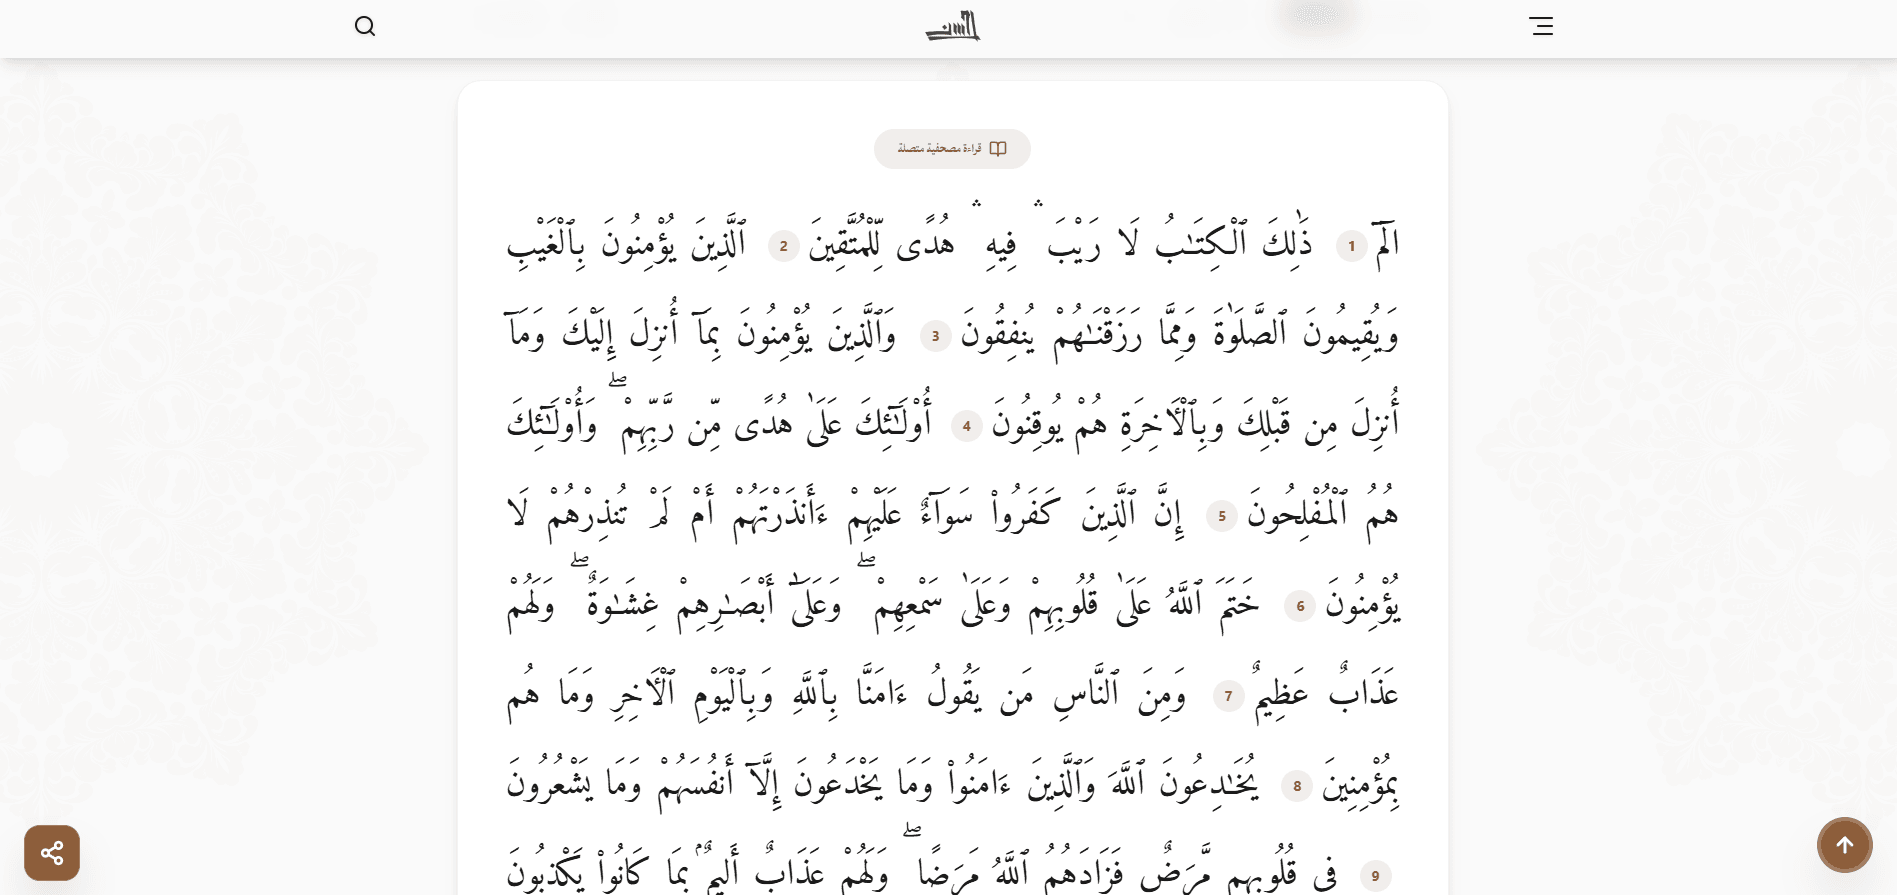 قراءة مصحفية متصلة
الٓمٓ 1 ذَٰلِكَ ٱلْكِتَـٰبُ لَا رَيْبَ ۛ فِيهِ ۛ هُدًى لِّلْمُتَّقِينَ 2 ٱلَّذِينَ يُؤْمِنُونَ بِٱلْغَيْبِ
وَيُقِيمُونَ ٱلصَّلَوٰةَ وَمِمَّا رَزَقْنَـٰهُمْ يُنفِقُونَ 3 وَٱلَّذِينَ يُؤْمِنُونَ بِمَآ أُنزِلَ إِلَيْكَ وَمَآ
أُنزِلَ مِن قَبْلِكَ وَبِٱلْـَٔاخِرَةِ هُمْ يُوقِنُونَ 4 أُو۟لَـٰٓئِكَ عَلَىٰ هُدًى مِّن رَّبِّهِمْ ۖ وَأُو۟لَـٰٓئِكَ
هُمُ ٱلْمُفْلِحُونَ 5 إِنَّ ٱلَّذِينَ كَفَرُوا۟ سَوَآءٌ عَلَيْهِمْ ءَأَنذَرْتَهُمْ أَمْ لَمْ تُنذِرْهُمْ لَا
يُؤْمِنُونَ 6 خَتَمَ ٱللَّهُ عَلَىٰ قُلُوبِهِمْ وَعَلَىٰ سَمْعِهِمْ ۖ وَعَلَىٰٓ أَبْصَـٰرِهِمْ غِشَـٰوَةٌ ۖ وَلَهُمْ
عَذَابٌ عَظِيمٌ 7 وَمِنَ ٱلنَّاسِ مَن يَقُولُ ءَامَنَّا بِٱللَّهِ وَبِٱلْيَوْمِ ٱلْـَٔاخِرِ وَمَا هُم
بِمُؤْمِنِينَ 8 يُخَـٰدِعُونَ ٱللَّهَ وَٱلَّذِينَ ءَامَنُوا۟ وَمَا يَخْدَعُونَ إِلَّآ أَنفُسَهُمْ وَمَا يَشْعُرُونَ
9 فِى قُلُوبِهِم مَّرَضٌ فَزَادَهُمُ ٱللَّهُ مَرَضًا ۖ وَلَهُمْ عَذَابٌ أَلِيمٌۢ بِمَا كَانُوا۟ يَكْذِبُونَ